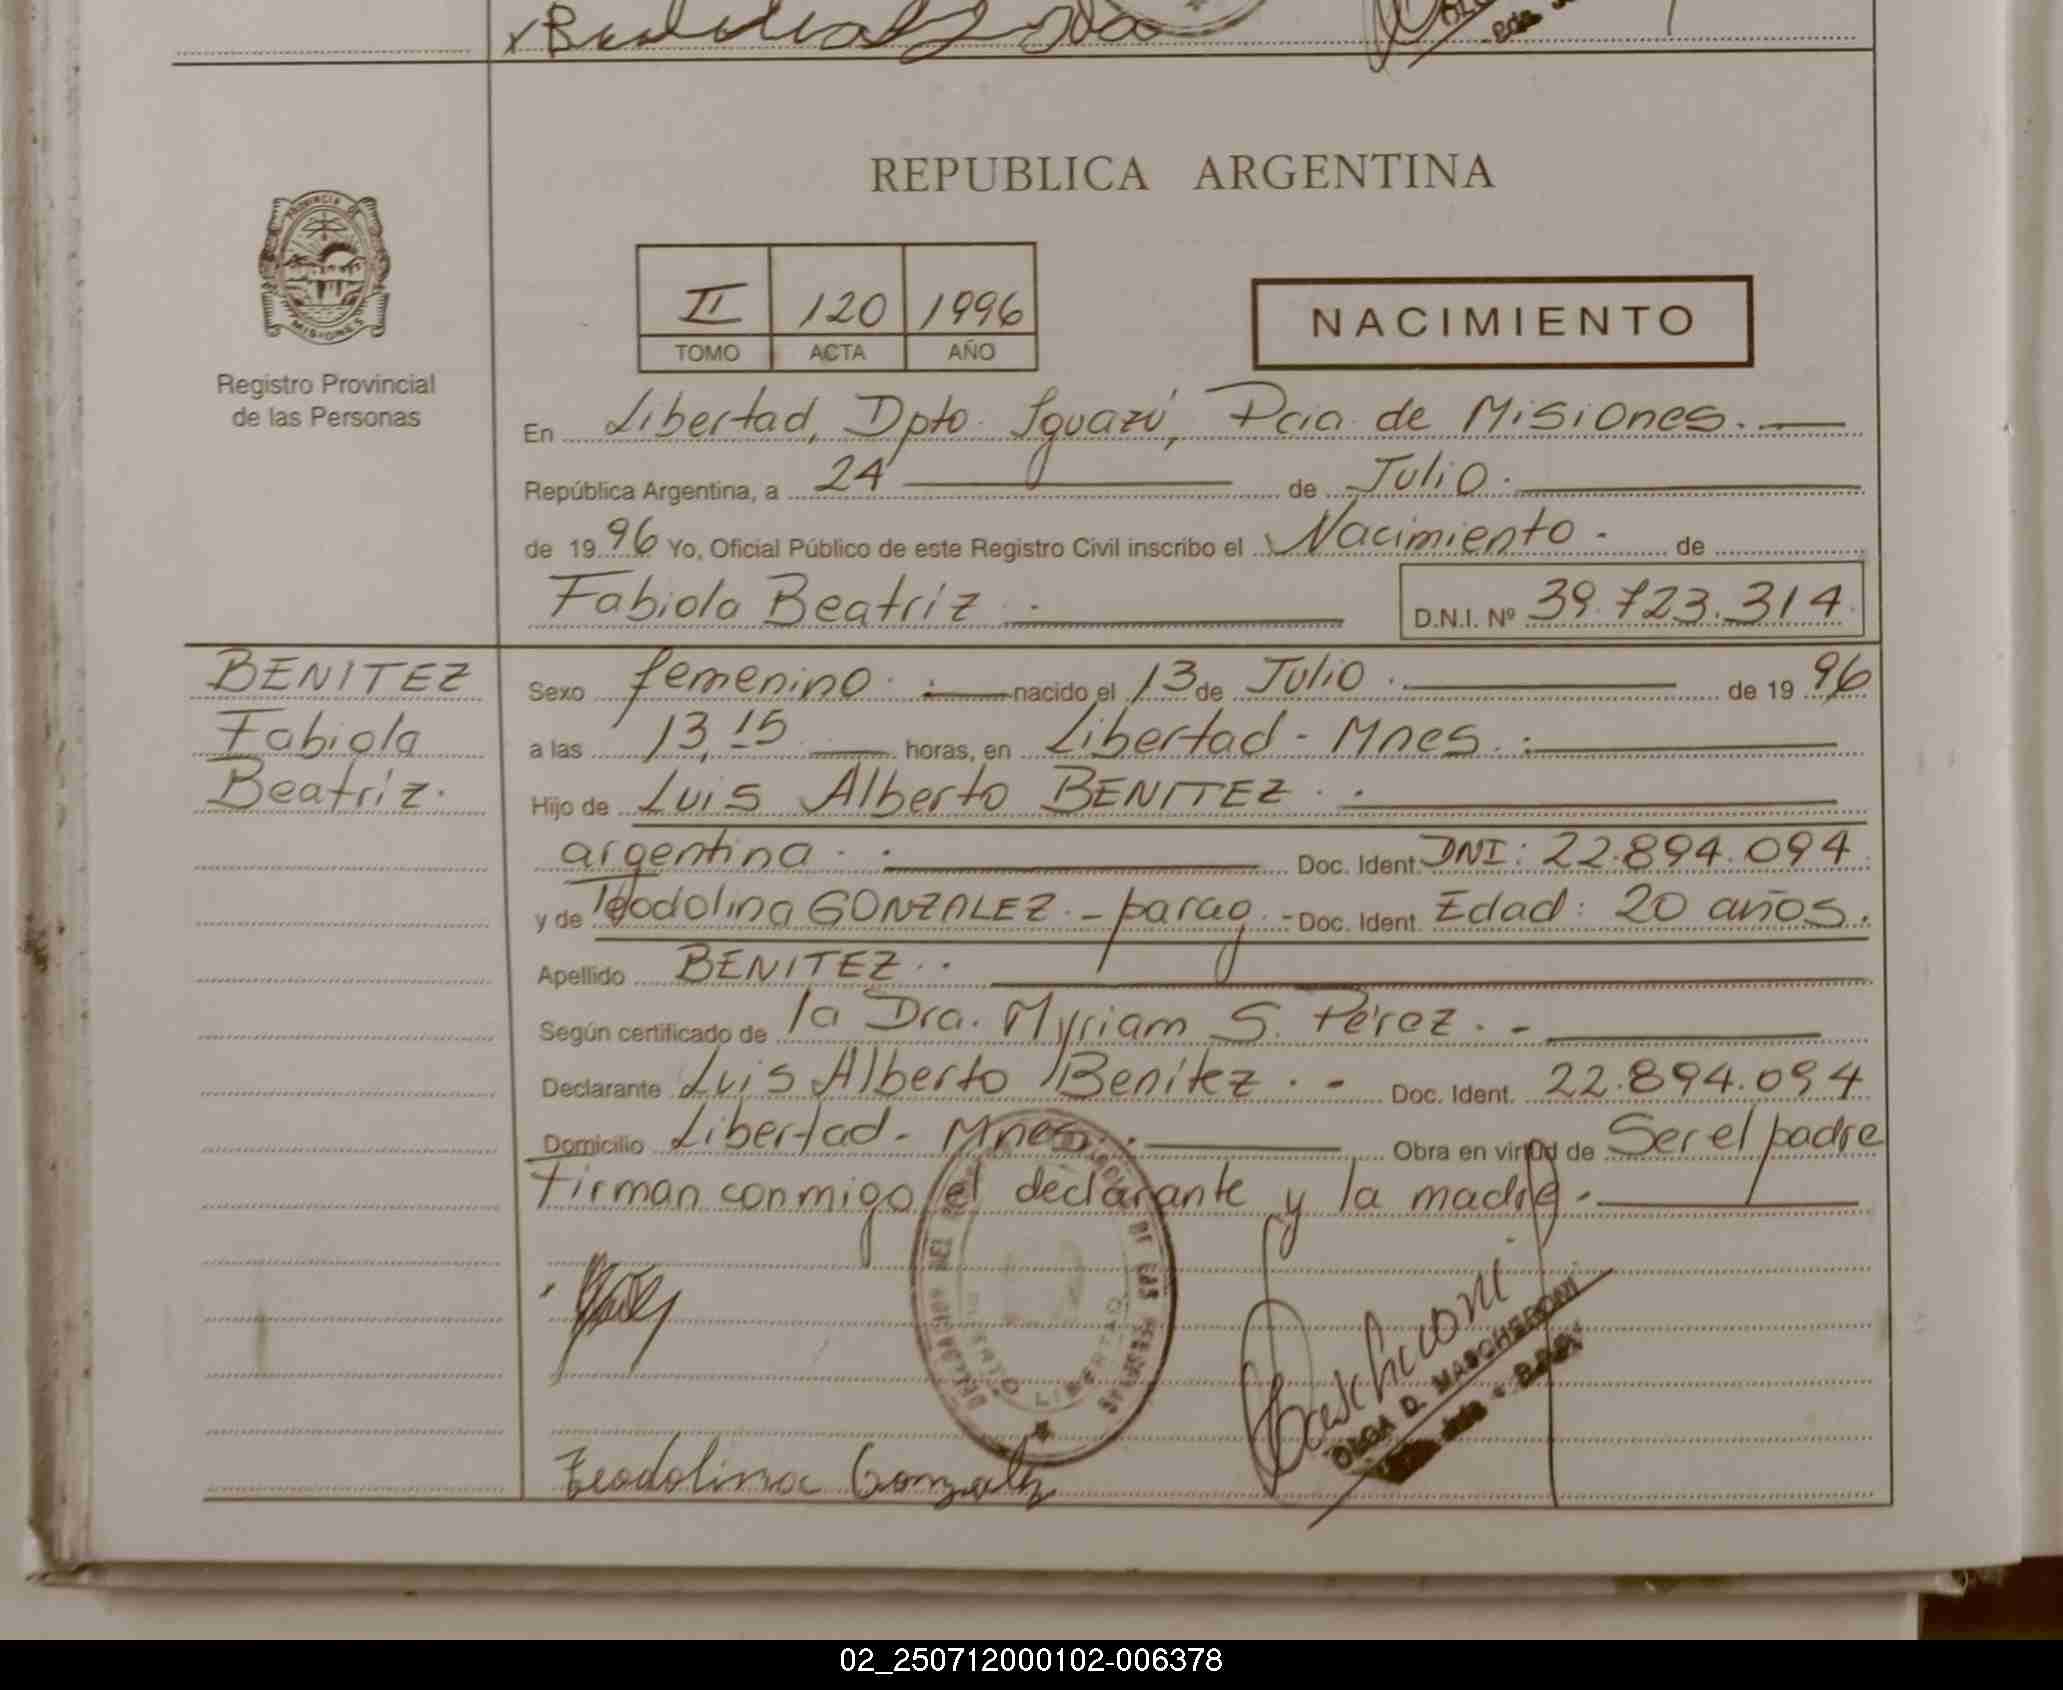 REPUBLICA ARGENTINA
PROVINCIA DE MISIONES
Registro Provincial
de las Personas
II 120 1996
TOMO ACTA AÑO
NACIMIENTO
En Libertad, Dpto. Iguazú, Pcia. de Misiones.
República Argentina, a 24 de Julio.
de 1996 Yo, Oficial Público de este Registro Civil inscribo el Nacimiento. de
Fabiola Beatriz. D.N.I. Nº 39.723.314
BENITEZ
Fabiola
Beatriz.
Sexo femenino. nacido el 13 de Julio. de 1996
a las 13,15 horas, en Libertad - Mnes.
Hijo de Luis Alberto BENITEZ.
argentina. Doc. Ident. DNI: 22.894.094
y de Teodolina GONZALEZ. - parag. - Doc. Ident. Edad: 20 años.
Apellido BENITEZ.
Según certificado de la Dra. Myriam S. Pérez. -
Declarante Luis Alberto Benitez. - Doc. Ident. 22.894.094
Domicilio Libertad - Mnes. Obra en virtud de Ser el padre
Firman conmigo el declarante y la madre.
DE LAS PERSONAS
LIBERTAD
OLGA D. MASCHERONI
Teodolina Gonzalez
02_250712000102-006378